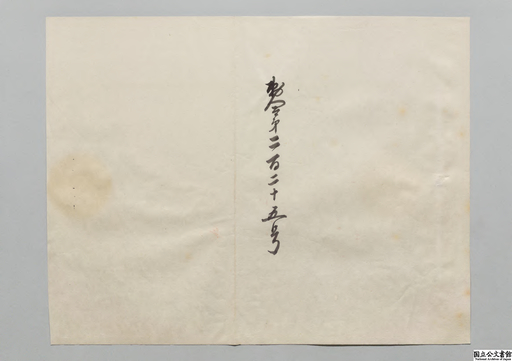 勅令第二百二十五号
国立公文書館
National Archives of Japan